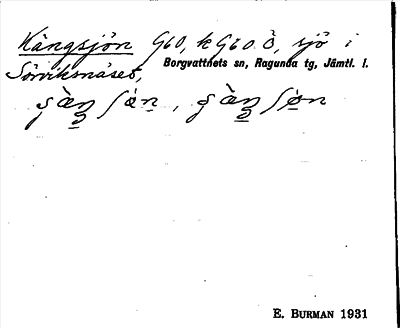 Kängsjön G60, k G60.Ö, sjö i
Sörviksnäset, Borgvattnets sn, Ragunda tg, Jämtl. l.
E. BURMAN 1931